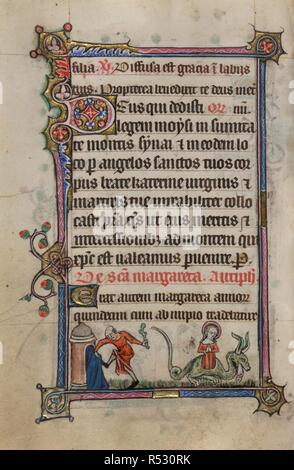 filia. Ꝟ. Diffusa est gracia ī labijs
tuis. Propterea benedixit te deus in eter
Deus qui dedisti Or nū.
legem moysi in summita
te montis synai et in eodem lo
co per angelos sanctos tuos cor
pus beate katerine virginis et
martiris tue mirabiliter collo
casti ut eius meritis et
intercessionibus ad montem qui
valeamus puenire. P.
De scā margareta. Antiph.
Erat autem margareta annor
quindecim cum ab impio traderetur
alamy
Image ID: R530RK
www.alamy.com